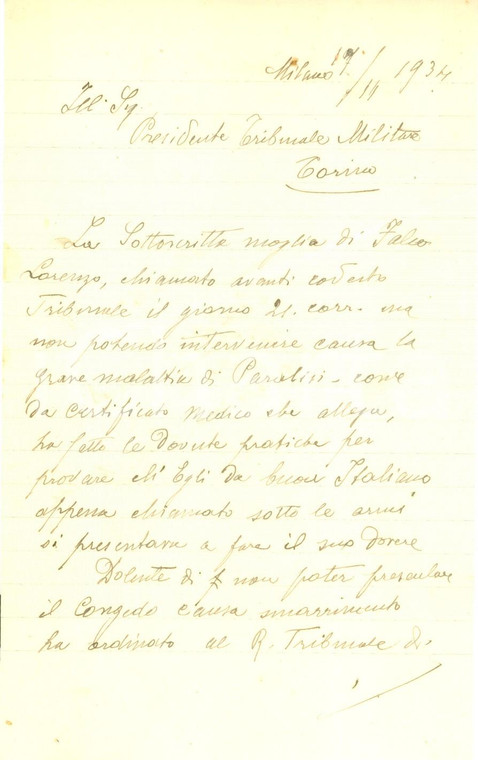 Milano 17/11 1934.
Ill. Sig.
Presidente Tribunale Militare
Torino
La Sottoscritta moglia di Falco
Lorenzo, chiamato avanti codesto
Tribunale il giorno 21. corr. ma
non potendo intervenire causa la
grave malattia di Paralisi - come
da certificato medico che allega,
ha fatto le dovute pratiche per
provare ch'Egli da buon Italiano
appena chiamato sotto le armi
si presentava a fare il suo dovere
Dolente di non poter presentare
il Congedo causa smarrimento
ha ordinato al R. Tribunale di